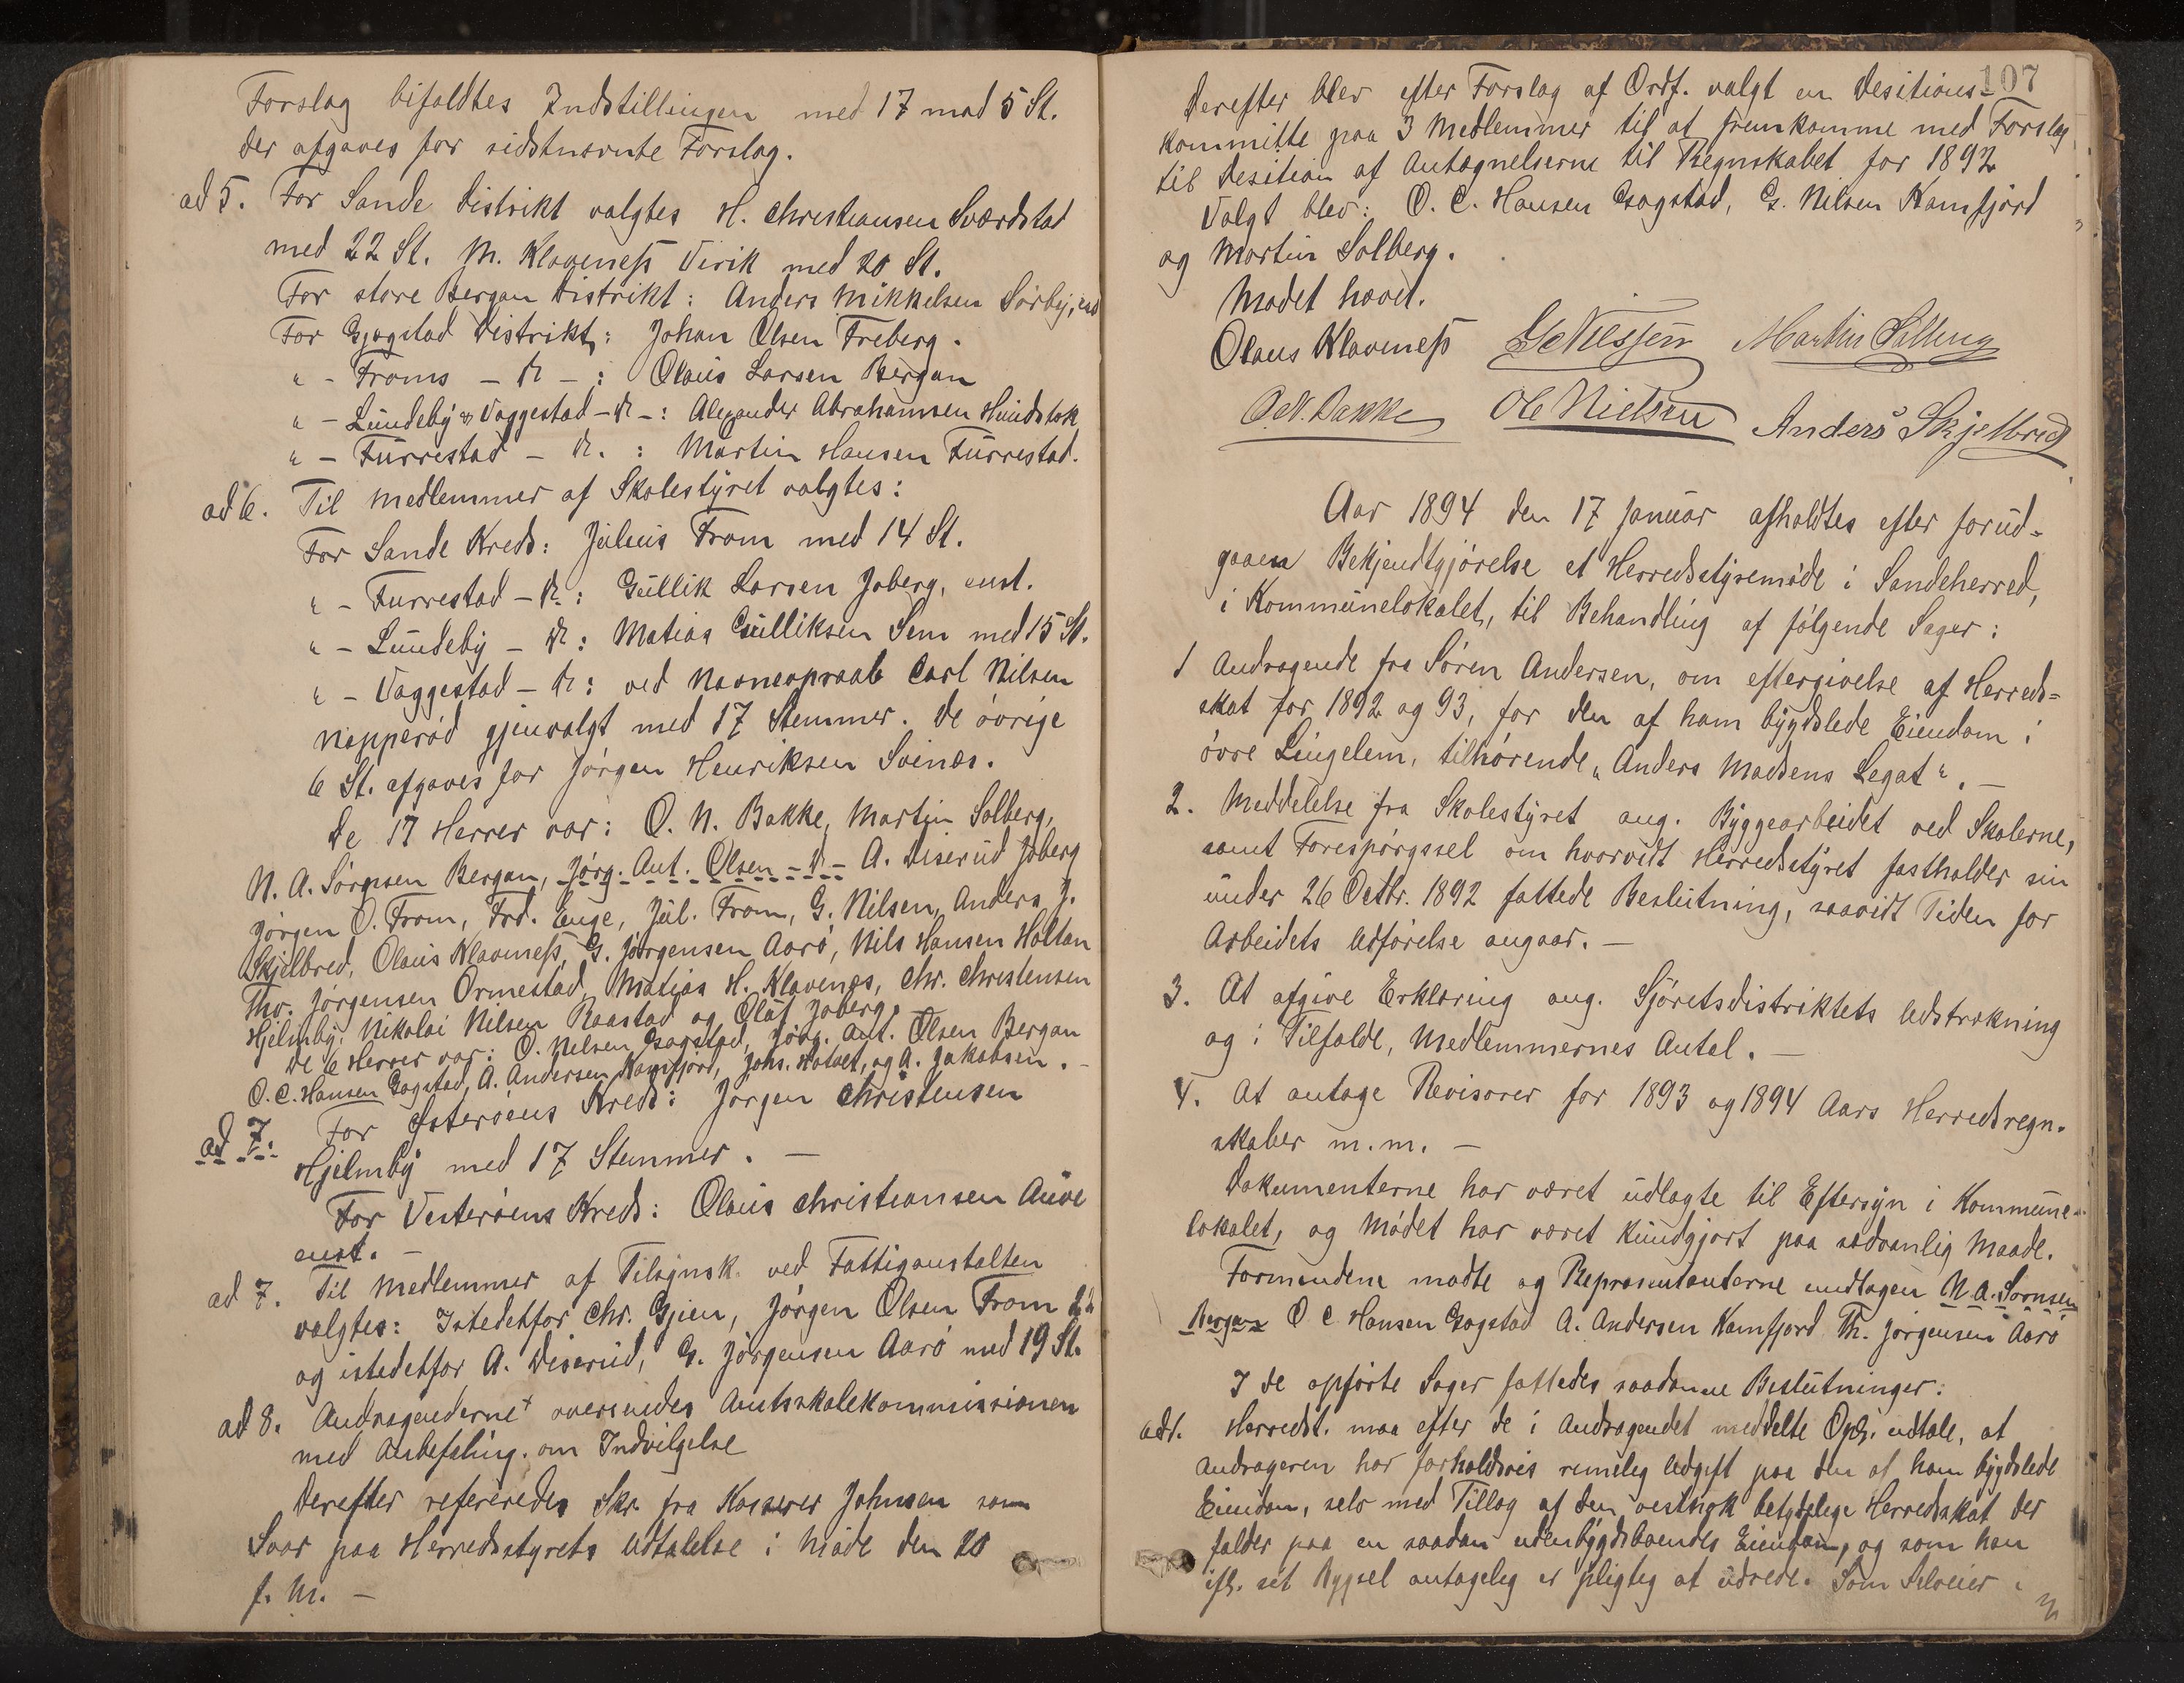 Forslag bifaldtes Indstillingen med 17 mod 5 St.
der afgaves for sidstnævnte Forslag.
ad 5. For Sande Distrikt valgtes H. Christiansen Sværdstad
med 22 St. M. Klaveness Virik med 20 St.
For store Bergan Distrikt: Anders Mikkelsen Sørby, enst
For Gjogstad Distrikt: Johan Olsen Freberg.
" - Froms - Dr - : Olaus Larsen Bergan
" - Lundeby & Vaggestad - Dr - : Alexander Abrahamsen Hundstok
" - Furrestad - Dr. : Martin Hansen Furrestad.
ad 6. Til Medlemmer af Skolestyret valgtes:
For Sande Kreds: Julius From med 14 St.
" - Furrestad - Dr.: Gullik Larsen Joberg, enst.
" - Lundeby - Dr: Matias Gulliksen Sem med 15 St.
" - Vaggestad - Dr: ved Navneopraab Carl Nilsen
Nopperød gjenvalgt med 17 Stemmer. De øvrige
6 St. afgaves for Jørgen Henriksen Svines.
De 17 Herrer var: O. N. Bakke, Martin Solberg,
N. A. Sørensen Bergan, Jørg. Ant. Olsen - Dr - A. Diserud Joberg
Jørgen O. From, Frd. Enge, Jul. From, G. Nilsen, Anders J.
Skjelbred, Olaus Klaveness, G. Jørgensen Aarø, Nils Hansen Holtan
Thv. Jørgensen Ormestad, Matias H. Klavenes, Chr. Christensen
Hjelmby, Nikolai Nilsen Raastad og Oluf Joberg.
De 6 Herrer var: O. Nelsen Gogstad, Jørg. Ant. Olsen Bergan
O. C. Hansen Gogstad, A. Andersen Kamfjord, Johs. Hotvet, og A. Jakobsen. -
ad 7: For Østerøens Kreds: Jørgen Christensen
Hjelmby med 17 Stemmer. -
For Vesterøens Kreds: Olaus Christiansen Auve
enst. -
ad 7. Til Medlemmer af Tilsynsk. ved Fattiganstalten
valgtes: Istedetfor Chr. Gjien, Jørgen Olsen From
og istedetfor A. Diserud, G. Jørgensen Aarø med 19 St.
ad 8. Andragenderne+ oversendes Amtsskolekommissionen
med Anbefaling om Indvilgelse
Derefter refereredes Skr. fra Kasserer Johnsen som
Svar paa Herredsstyrets Udtalelse i Møde den 20
f. M. -
107
Derefter blev efter Forslag af Ordf. valgt en Desitions-
kommitte paa 3 Medlemmer til at fremkomme med Forslag
til Desition af Antegnelserne til Regnskabet for 1892
Valgt blev: O. C. Hansen Gogstad, G. Nilsen Kamfjord
og Martin Solberg.
Mødet hævet.
Olaus Klaveness G Nilssen Martin Solberg
O. N. Bakke Ole Nielsen Anders Skjelbred
Aar 1894 den 17 Januar afholdtes efter forud-
gaaen Bekjendtgjørelse et Herredsstyremøde i Sandeherred,
i Kommunelokalet, til Behandling af følgende Sager:
1 Andragende fra Søren Andersen, om eftergivelse af Herreds=
skat for 1892 og 93, for den af ham bygdslede Eiendom i
øvre Lingelem, tilhørende „Anders Madsens Legat“. -
2. Meddelelse fra Skolestyret ang. Byggearbeidet ved Skolerne,
samt Forespørgssel om hvorvidt Herredsstyret fastholder sin
under 26 Octbr. 1892 fattede Beslutning, saavidt Tiden for
Arbeidets Udførelse angaar. -
3. At afgive Erklæring ang. Sjøretsdistriktets Udstrækning
og i Tilfælde, Medlemmernes Antal. -
4. At antage Revisorer for 1893 og 1894 Aars Herredsregn-
skaber m.m. -
Dokumenterne har været udlagte til Eftersyn i Kommune-
lokalet, og Mødet har været kundgjort paa sædvanlig Maade.
Formendene mødte og Repræsentanterne undtagen N. A. Sørnsen
Bergan O C Hansen Gogstad A. Andersen Kamfjord Th. Jørgensen Aarø
I de opførte Sager fattedes saadanne Beslutninger:
ad 1. Herredst. maa efter de i Andragendet meddelte Opl. udtale, at
Andrageren har forholdsvis rimelig Udgift paa den af ham bygdslede
Eiendom, selv med Tillæg af den vestnok betydelige Herredsskat der
falder paa en saadan udenbygdsboendes Eiendom, og som han
ifl. sit Bygsel antagelig er pligtig at udrede. Som Selveier